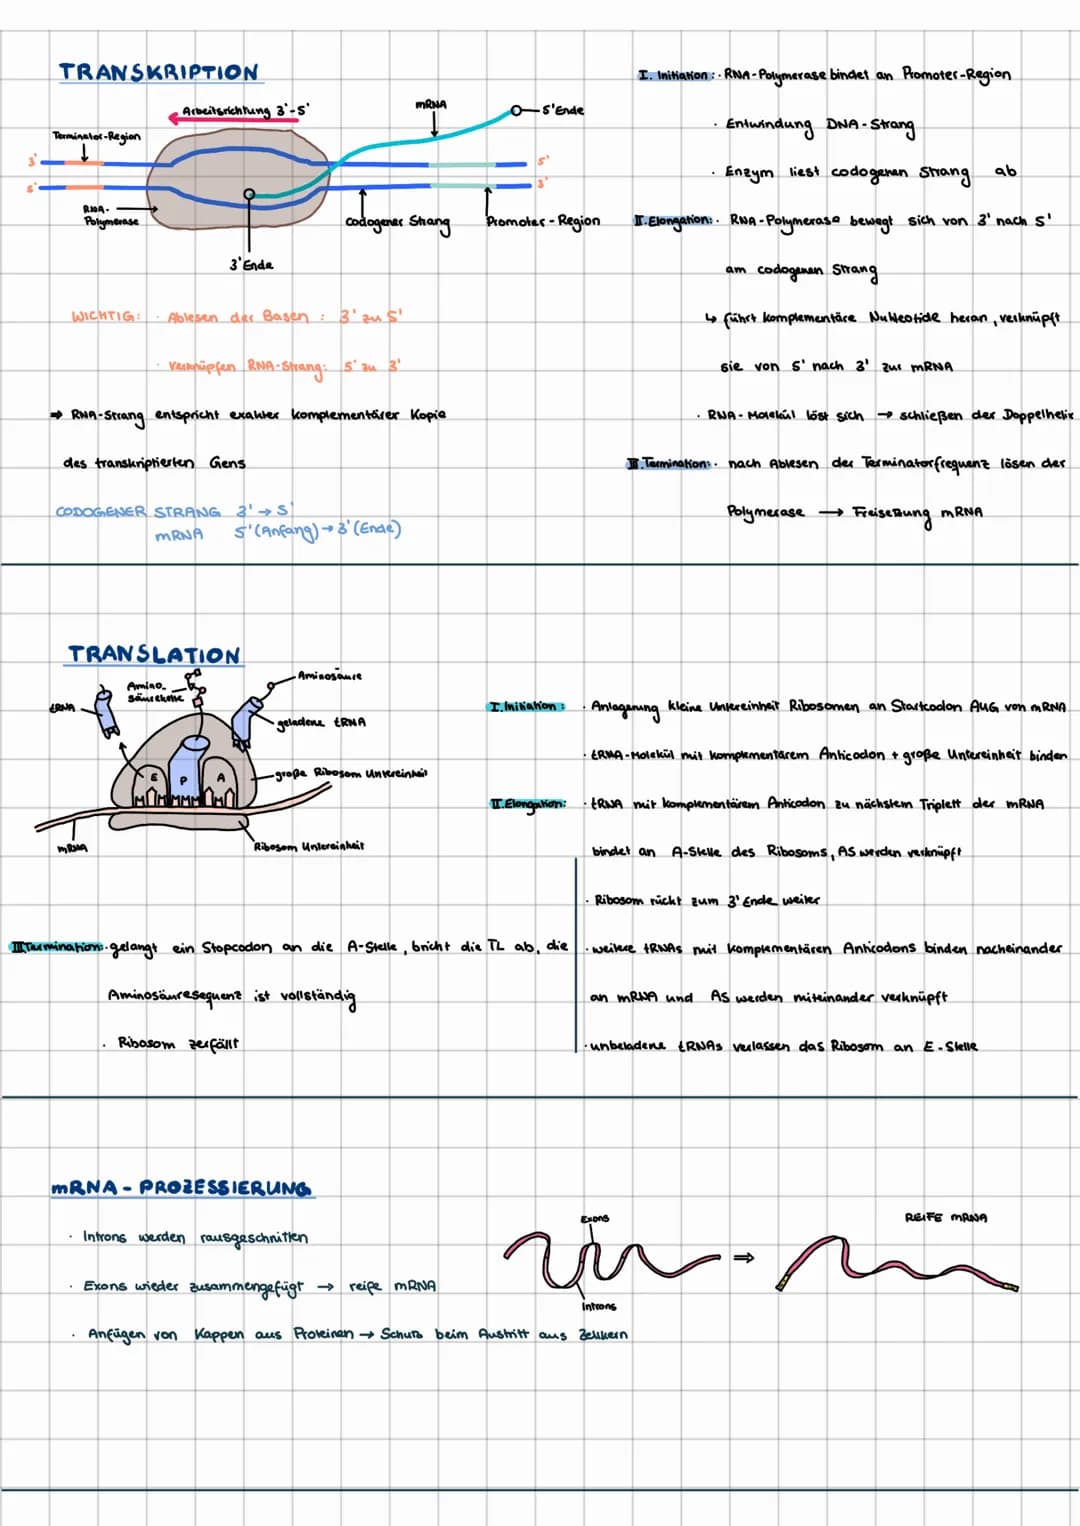 TRANSKRIPTION
Arbeitsrichtung 3'-5'
mRNA
5'Ende
Terminator-Region
3'
5'
5'
3'
RNA-
Polymerase
Codogener Strang
Promoter-Region
3'Ende
WICHTIG: · Ablesen der Basen : 3' zu 5'
· Verknüpfen RNA-Strang: 5' zu 3'
⇒ RNA-Strang entspricht exakter komplementärer Kopie
des transkriptierten Gens
CODOGENER STRANG 3' → 5'
mRNA 5'(Anfang) → 3'(Ende)
I. Initiation : · RNA-Polymerase bindet an Promoter-Region
· Entwindung DNA-Strang
· Enzym liest codogenen Strang ab
II. Elongation: · RNA-Polymerase bewegt sich von 3' nach 5'
am codogenen Strang
↳ führt komplementäre Nukleotide heran, verknüpft
sie von 5' nach 3' zur mRNA
· RNA-Molekül löst sich → schließen der Doppelhelix
III. Termination: · nach Ablesen der Terminatorfrequenz lösen der
Polymerase → Freisetzung mRNA
TRANSLATION
Amino-
säurekette
Aminosäure
tRNA
geladene tRNA
E P A
große Ribosom Untereinheit
mRNA
Ribosom Untereinheit
I. Initiation : · Anlagerung kleine Untereinheit Ribosomen an Startcodon AUG von mRNA
· tRNA-Molekül mit komplementärem Anticodon + große Untereinheit binden
II. Elongation: · tRNA mit komplementärem Anticodon zu nächstem Triplett der mRNA
bindet an A-Stelle des Ribosoms, AS werden verknüpft
· Ribosom rückt zum 3' Ende weiter
· weitere tRNAs mit komplementären Anticodons binden nacheinander
an mRNA und AS werden miteinander verknüpft
· unbeladene tRNAs verlassen das Ribosom an E-Stelle
III Termination: · gelangt ein Stopcodon an die A-Stelle, bricht die TL ab, die
Aminosäuresequenz ist vollständig
· Ribosom zerfällt
mRNA - PROZESSIERUNG
· Introns werden rausgeschnitten
· Exons wieder zusammengefügt → reife mRNA
· Anfügen von Kappen aus Proteinen → Schutz beim Austritt aus Zellkern
Exons
Introns
⇒
REIFE mRNA